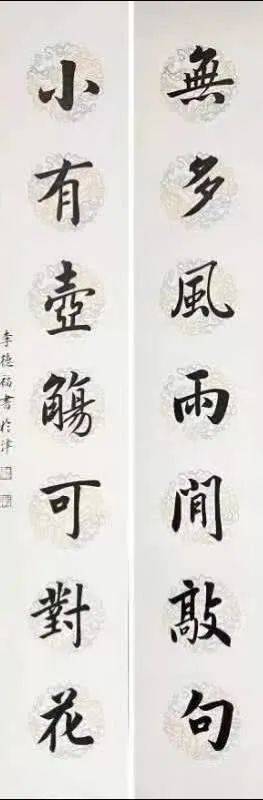 無多風雨閒敲句
小有壺觴可對花
李德福書於津